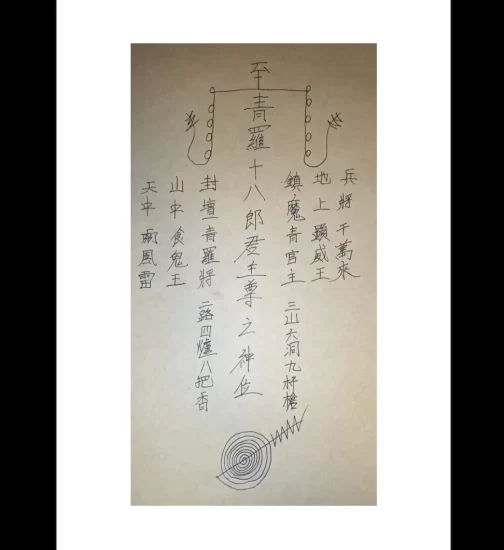 兵將千萬來
地上顯威王
鎮魔青宮主 三山大洞九杆槍
至青羅十八郎君主尊之神位
封壇青羅將 二路四爐八把香
山中食鬼王
天中雨風雷